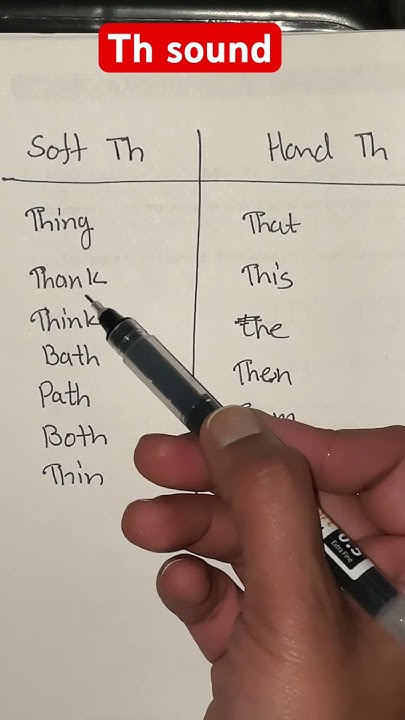 Th sound
Soft Th Hard Th
Thing That
Thank This
Think the
Bath Then
Path
Both
Thin
0.5
Extra Fine